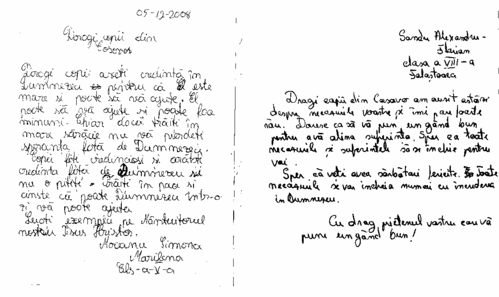 05-12-2008
Dragi copii din
Cosovos
Dragi copii aveti credintă în
Dumnezeu pentru că El este
mare si poate să vă ajute. El
poate să vă ajute si poate face
minuni. Chiar dacă trăiti în
mare sărăcie nu vă pierdeti
speranta fată de Dumnezeu.
Copii fiti credinciosi si arătati
credinta fată de Dumnezeu si
nu o uitati. Trăiti în pace si
cinste că poate Dumnezeu într-o
zi vă poate ajuta.
Luati exemplu pe Mântuitorul
nostru Iisus Hristos.
Mocanu Simona
Marilena
Cls-a-V-a
Sandu Alexandru-
Florian
clasa a VIII-a
Falastoaca
Dragi copii din Casavo am auzit astăzi
despre necazurile voastre și îmi pare foarte
rău. Daure ca să vă pun un gând bun
pentru a vă alina suferinta. Sper ca toate
necazurile și suferintele să se încheie pentru
voi.
Sper că veti avea sărbători fericite. Toate
necazurile se vor încheia numai cu încrederea
în Dumnezeu.
Cu drag prietenul vostru care vă
pune un gând bun!